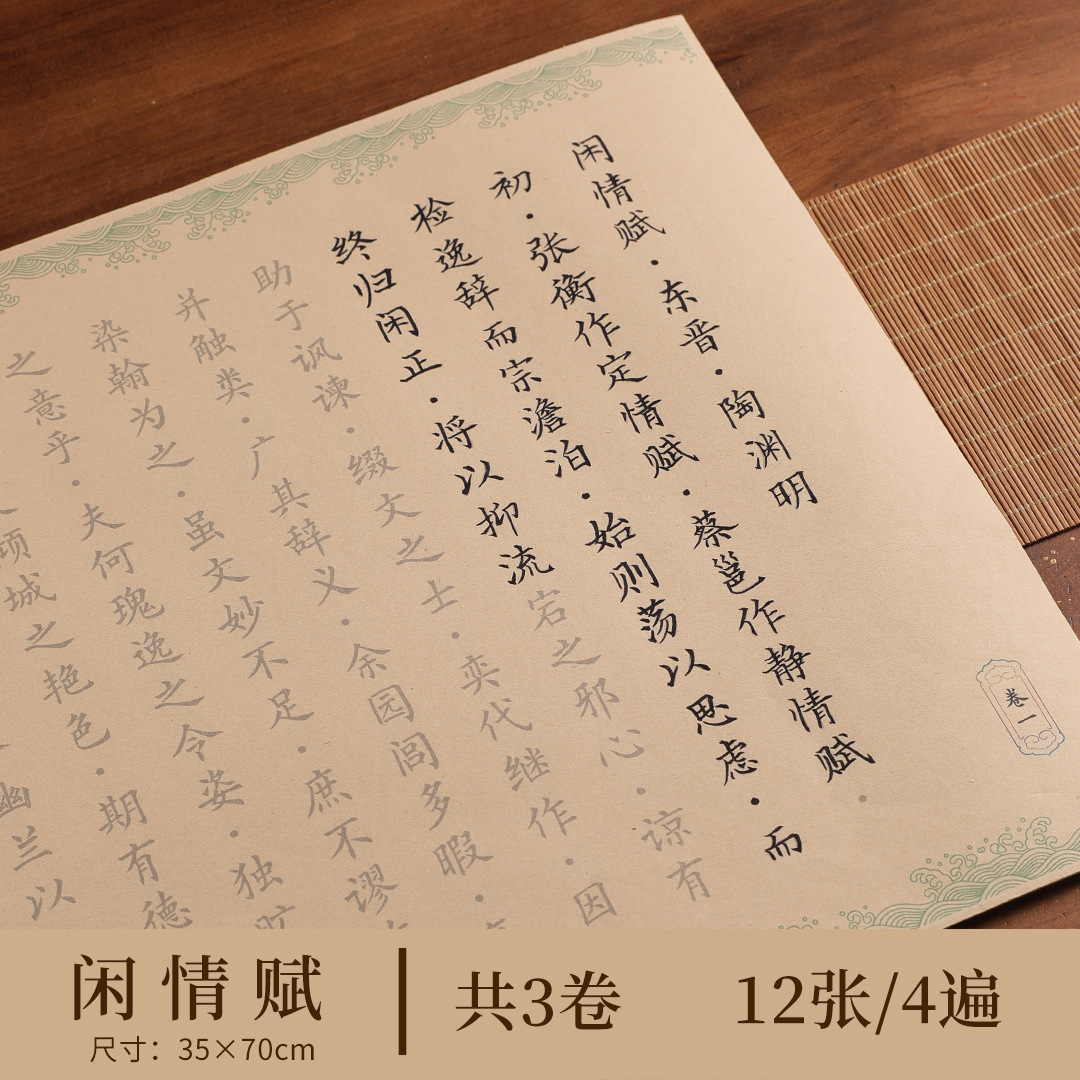 闲情赋·东晋·陶渊明
初·张衡作定情赋·蔡邕作静情赋·
检逸辞而宗澹泊·始则荡以思虑·而
终归闲正·将以抑流宕之邪心·谅有
助于讽谏·缀文之士·奕代继作·因
并触类·广其辞义·余园闾多暇·
染翰为之·虽文妙不足·庶不谬
之意乎·夫何瑰逸之令姿·独旷
倾城之艳色·期有德
幽兰以
卷一
闲情赋
尺寸：35×70cm
共3卷
12张/4遍